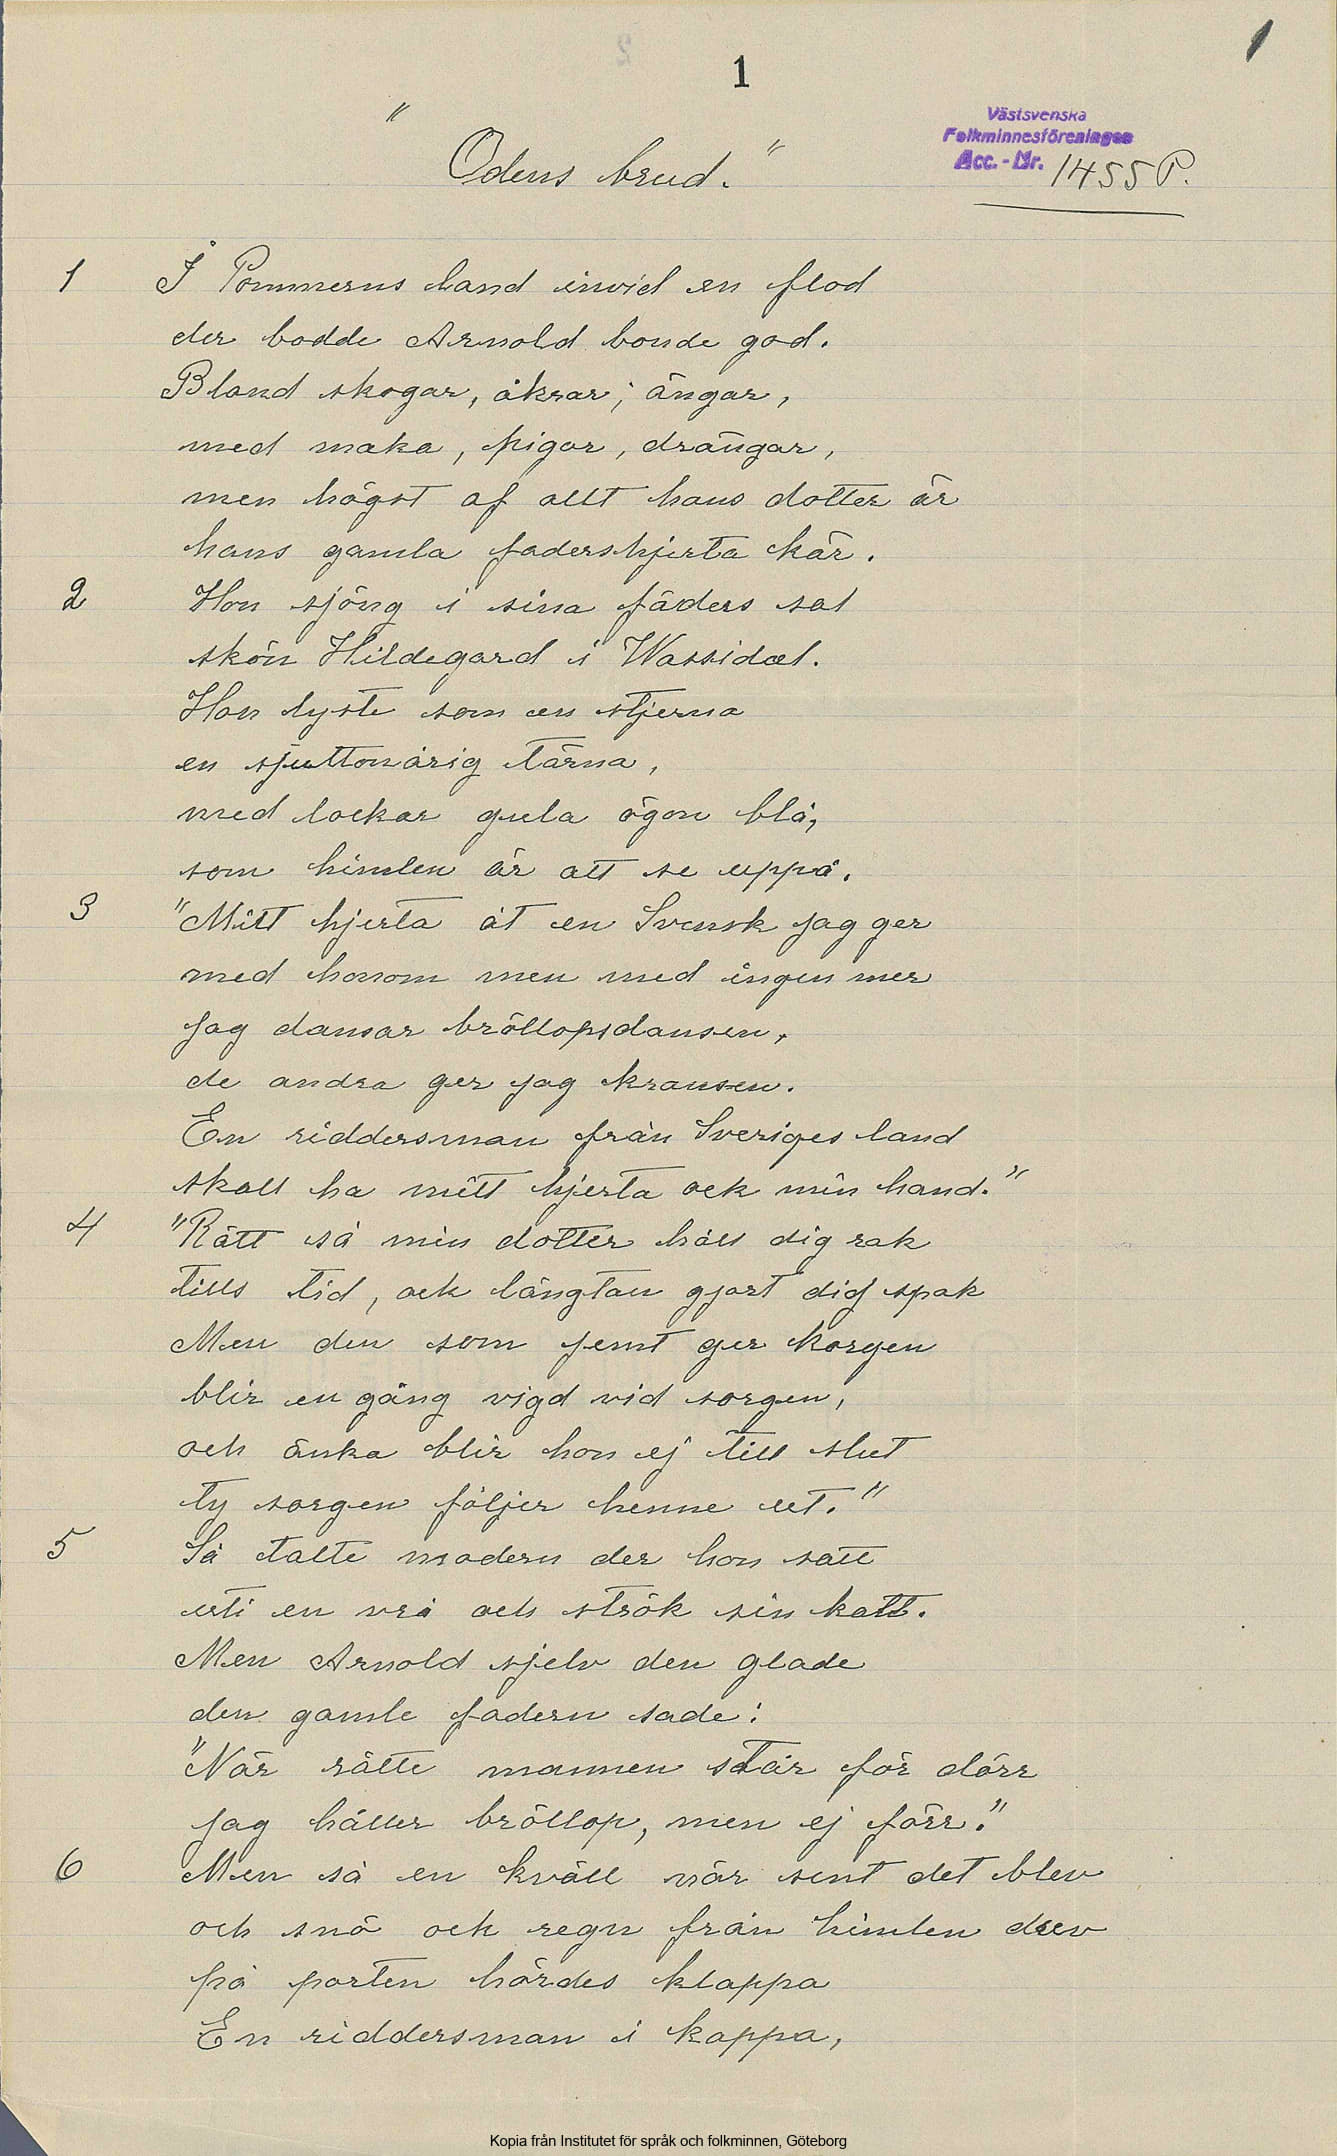 1
1
"Odens brud."
Västsvenska
Folkminnesföreningen
Acc.-Nr. 1455 P.
1 I Pommerns land invid en flod
der bodde Arnold bonde god.
Bland skogar, åkrar, ängar,
med maka, pigor, drängar,
men högst af allt hans dotter är
hans gamla fadershjerta kär.
2 Hon sjöng i sina fäders sal
skön Hildegard i Wassidal.
Hon lyste som en stjerna
en sjuttonårig tärna,
med lockar gula ögon blå,
som himlen är att se uppå.
3 "Mitt hjerta åt en Svensk jag ger
med honom men med ingen mer
jag dansar bröllopsdansen,
de andra ger jag kransen.
En riddersman från Sveriges land
skall ha mitt hjerta ock min hand."
4 "Rätt så min dotter håll dig rak
tills tid, ock längtan gjort dig spak
Men den som jemt ger korgen
blir en gång vigd vid sorgen,
och änka blir hon ej till slut
ty sorgen följer henne ut."
5 Så talte modern der hon satt
uti en vrå och strök sin katt.
Men Arnold sjelv den glade
den gamle fadern sade:
"När rätte mannen står för dörr
jag håller bröllop, men ej förr."
6 Men så en kväll när sent det blev
och snö ock regn från himlen drev
på porten hördes klappa
En riddersman i kappa,
Kopia från Institutet för språk och folkminnen, Göteborg